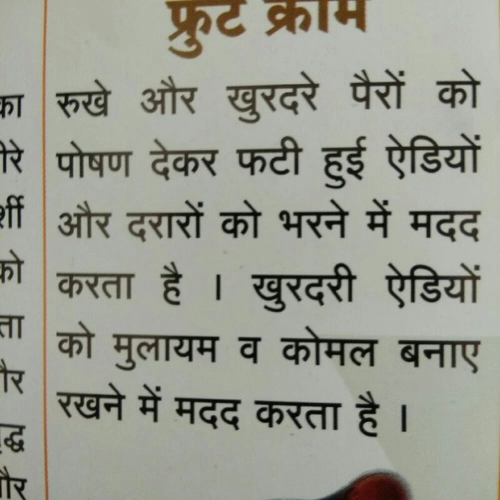 फ्रुट क्रीम
रुखे और खुरदरे पैरों को
पोषण देकर फटी हुई ऐडियों
और दरारों को भरने में मदद
करता है । खुरदरी ऐडियों
को मुलायम व कोमल बनाए
रखने में मदद करता है ।
का
को